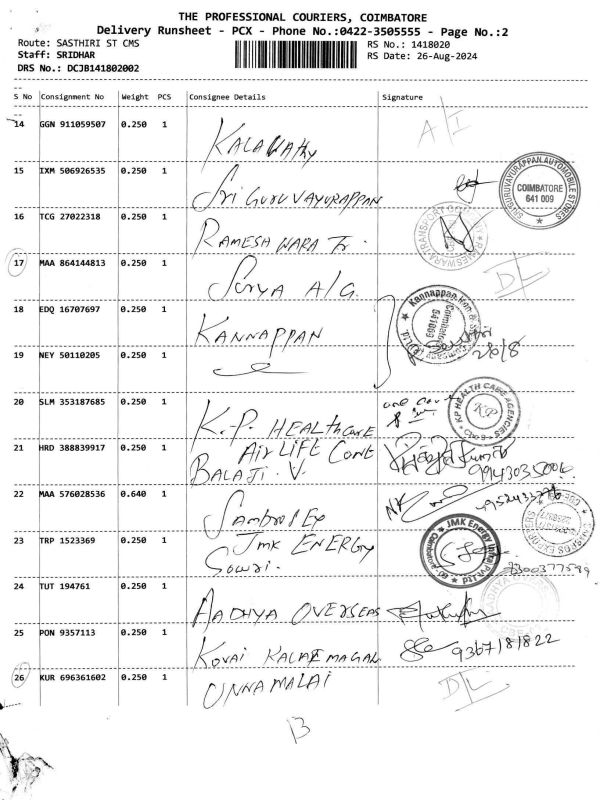 THE PROFESSIONAL COURIERS, COIMBATORE
Delivery Runsheet - PCX - Phone No.:0422-3505555 - Page No.:2
Route: SASTHIRI ST CMS
RS No.: 1418020
Staff: SRIDHAR
RS Date: 26-Aug-2024
DRS No.: DCJB141802002
S No Consignment No Weight PCS Consignee Details Signature
14 GGN 911059507 0.250 1 KALAVATHY A/I
15 IXM 506926535 0.250 1 SRI GURUVAYURAPPAN
SRI GURUVAYURAPPAN AUTOMOBILE STORES
COIMBATORE
641 009
16 TCG 27022318 0.250 1 RAMESHWARA Tr.
17 MAA 864144813 0.250 1 SURYA A/G. D/L
18 EDQ 16707697 0.250 1 KANNAPPAN
Kannappan Iron &
Coimbatore
19 NEY 50110205 0.250 1
28/8
20 SLM 353187685 0.250 1 K.P. HEALTHCARE
K P HEALTH CARE AGENCIES
KP
21 HRD 388839917 0.250 1 AIRLIFE CONE
BALAJI. V.
22 MAA 576028536 0.640 1
23 TRP 1523369 0.250 1 JMK ENERGY
JMK Energy
24 TUT 194761 0.250 1 AADHYA OVERSEAS
25 PON 9357113 0.250 1 KOVAI KALAIMAGAL 9367181822
26 KUR 696361602 0.250 1 UNNAMALAI D/L
13